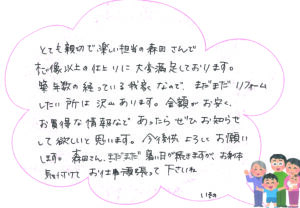 とても親切で楽しい担当の森田さんで
想像以上の仕上りに大変満足しております。
築年数の経っている我家なので、まだまだリフォーム
したい所は沢山あります。金額がお安く、
お買得な情報など あったら ぜひ お知らせ
して欲しいと思います。今後共 よろしく お願い
します。森田さん、まだまだ 暑い日が続きますが、お身体
気を付けて お仕事頑張って下さいね